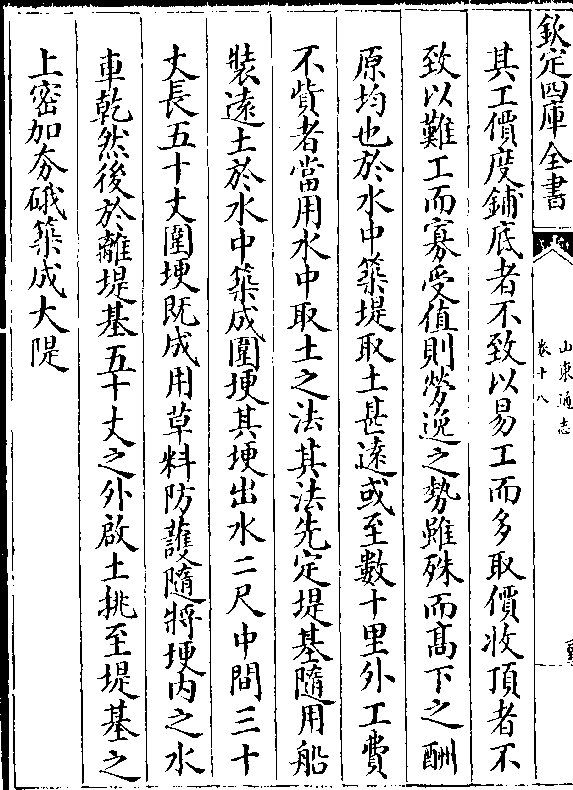 欽定四庫全書
山東通志
卷十八
其工價庶鋪底者不致以易工而多取價收頂者不
致以難工而寡受值則勞逸之勢雖殊而高下之酬
原均也於水中築堤取土甚遠或至數十里外工費
不貲者當用水中取土之法其法先定堤基隨用船
裝遠土於水中築成圍埂其埂出水二尺中間三十
丈長五十丈圍埂既成用草料防護隨將埂內之水
車乾然後於離堤基五十丈之外啟土挑至堤基之
上密加夯硪築成大隄